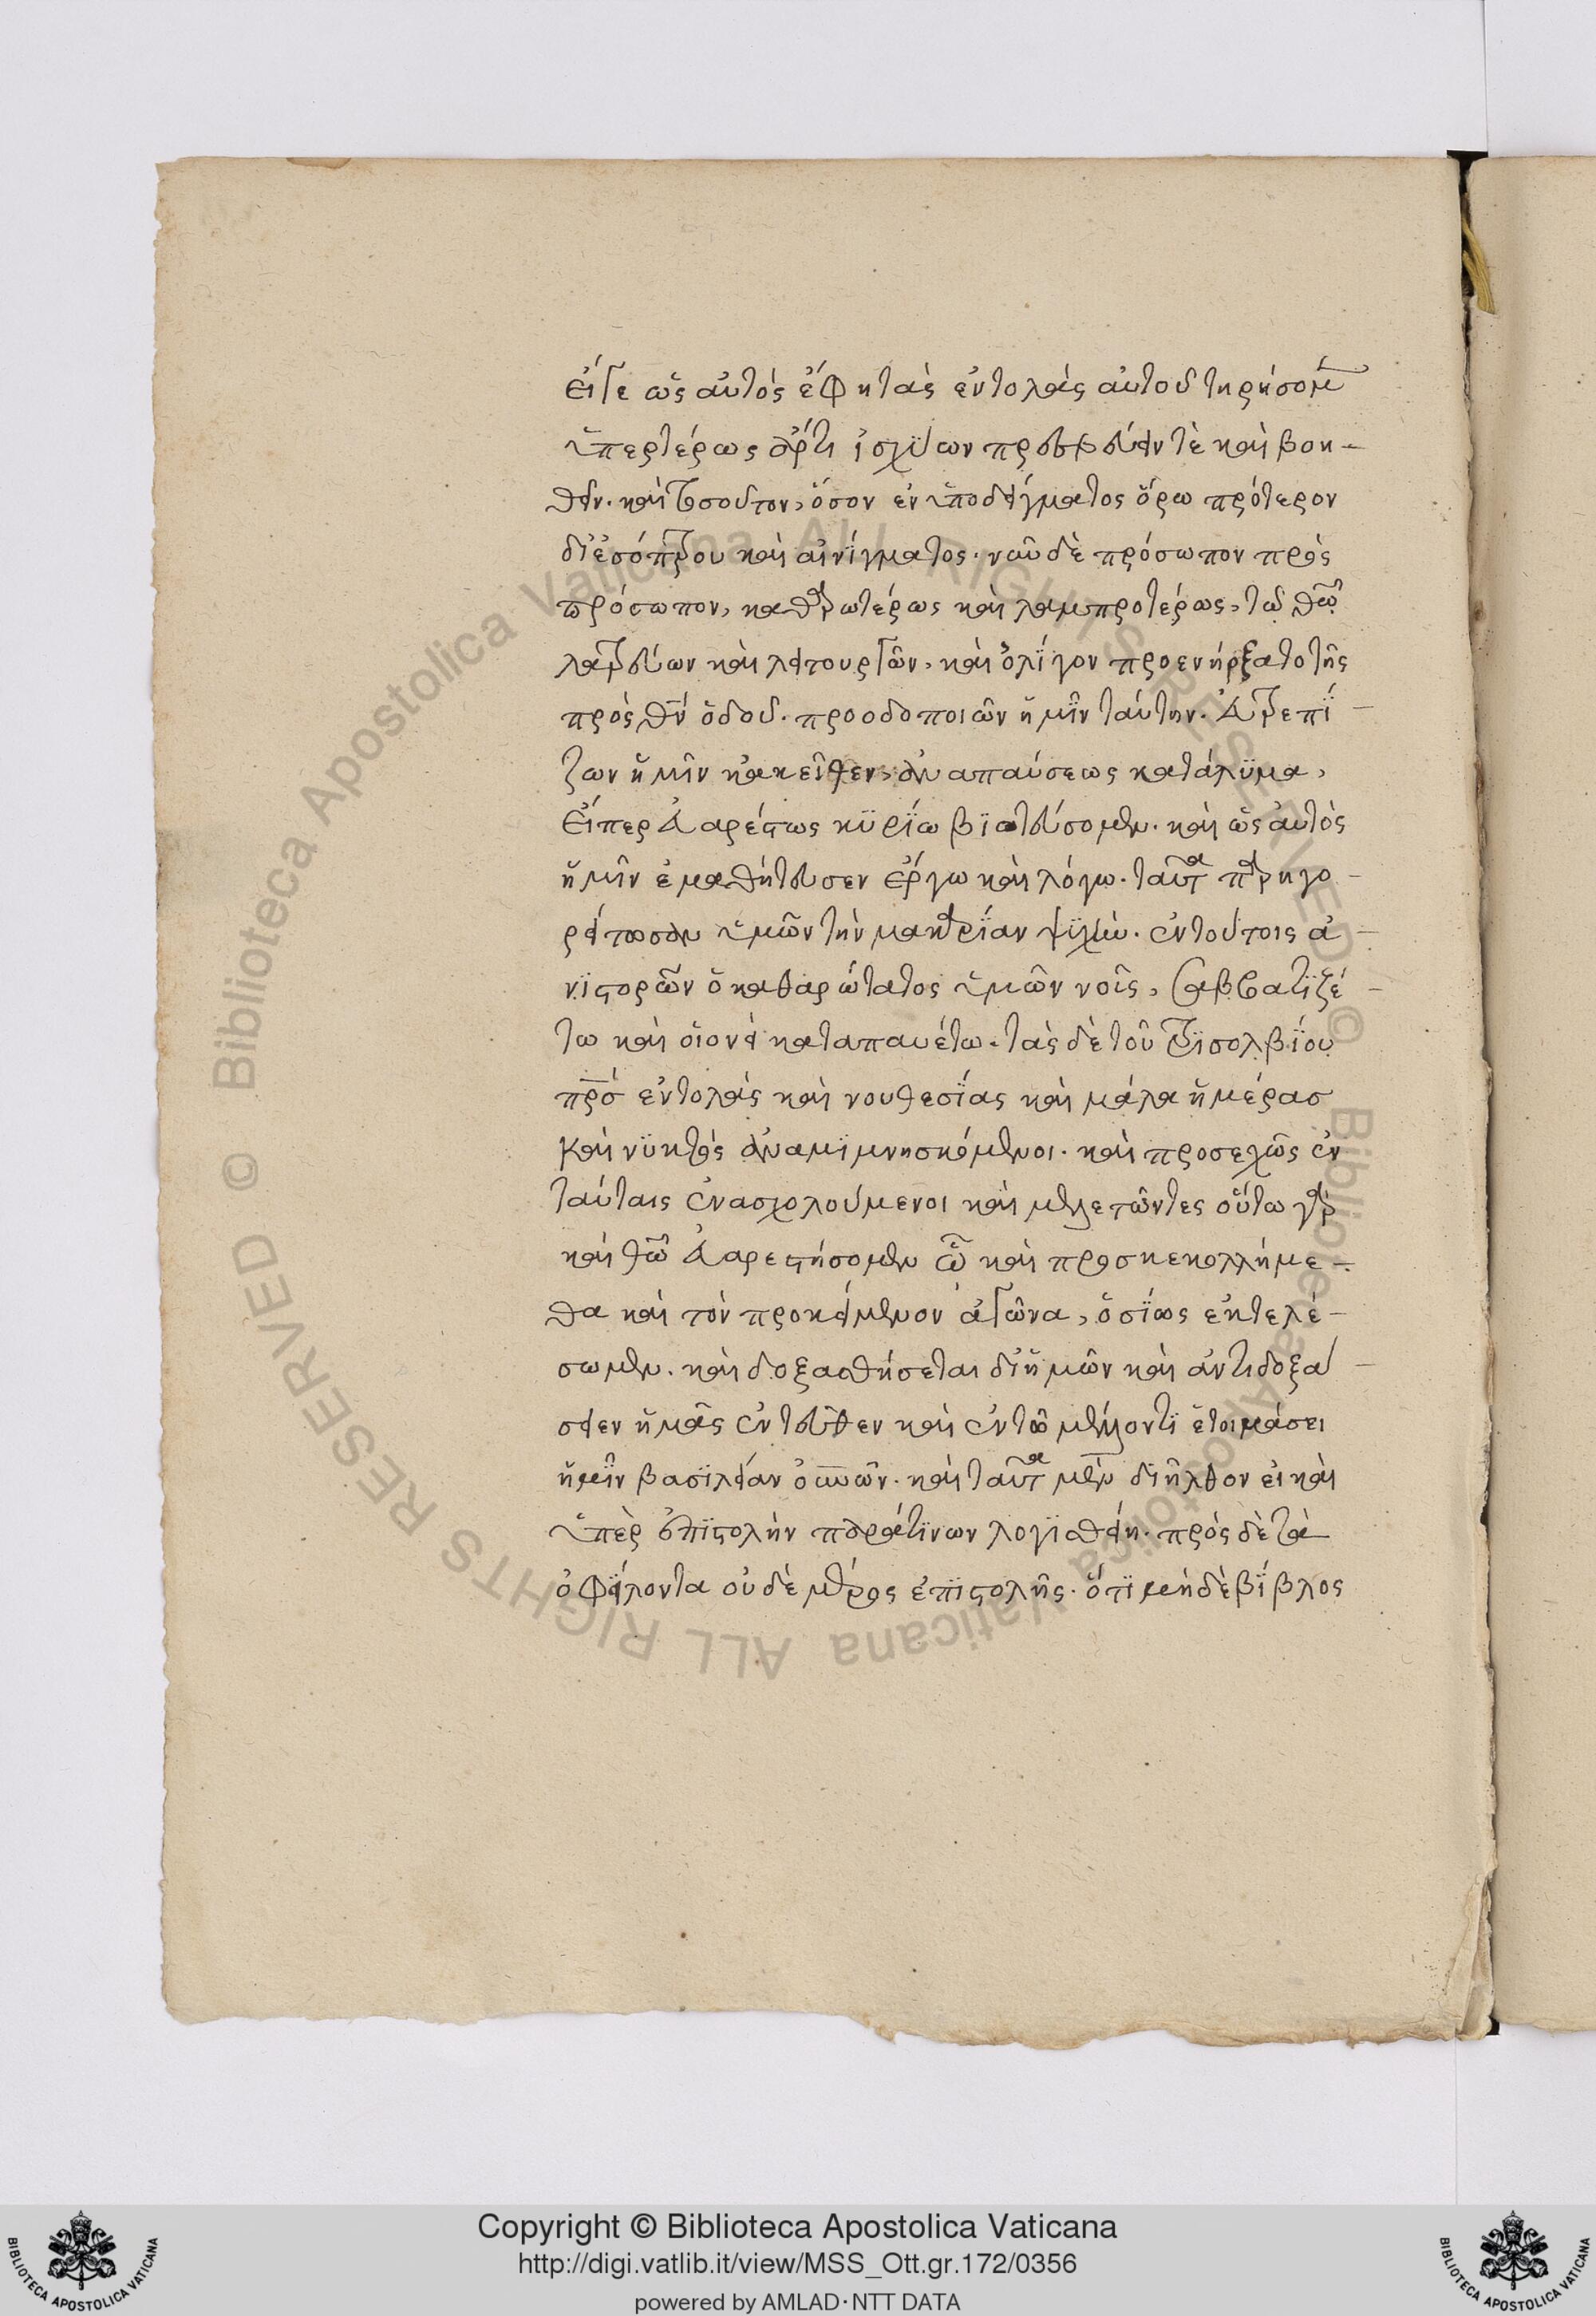 εἴγε ὡς αὐτὸς ἔφη τὰς ἐντολὰς αὐτοῦ τηρήσομεν
ὑπερτέρως ἄρτι ἰσχύων πρεσβεύειν τὲ καὶ βοη-
θεῖν. καὶ τοσοῦτον, ὅσον ἐν ὑποδείγματος ὅρω πρότερον
δι ἐσόπτρου καὶ αἰνίγματος. νῦν δὲ πρόσωπον πρὸς
πρόσωπον, καθαρωτέρως καὶ λαμπροτέρως, τῶ θεῶ
λατρεύων καὶ λειτουργῶν. καὶ ὀλίγον προενήρξατο τῆς
πρὸς θεὸν ὁδοῦ. προοδοποιῶν ἡμῖν ταύτην. εὐτρεπί-
ζων ἡμῖν κἀκεῖθεν, ἀναπαύσεως κατάλϋμα,
εἴπερ εὐαρέστως κϋρίω βιοτεύσομεν. καὶ ὡς αὐτὸς
ἡμῖν ἐμαθήτευσεν ἔργω καὶ λόγω. ταῦτα παρηγο-
ρείτωσαν ὑμῶν τὴν μακαρίαν ψϋχὴν. ἐν τούτοις ἀ-
νιστορῶν ὁ καθαρώτατος ὑμῶν νοῦς, σαββατιζέ-
τω καὶ οἱονεὶ καταπαυέτω. τὰς δὲ τοῦ τρισολβίου
πρσ ἐντολὰς καὶ νουθεσίας καὶ μάλα ἡμέρασ
καὶ νϋκτὸς ἀναμιμνησκόμενοι. καὶ προσεχῶς ἐν
ταύταις ἐνασχολούμενοι καὶ μελετῶντες οὕτω γὰρ
καὶ θεῶ εὐαρεστήσομεν ὧ καὶ προσκεκολλήμε-
θα καὶ τὸν προκείμενον ἀγῶνα, ὁσίως ἐκτελέ-
σωμεν. καὶ δοξασθήσεται δι ἡμῶν καὶ ἀντιδοξά-
σειεν ἡμᾶς ἐντεῦθεν καὶ ἐν τῶ μέλλοντι ἑτοιμάσει
ἡμῖν βασιλείαν οὐνῶν. καὶ ταῦτα μὲν διῆλθον εἰ καὶ
ὑπὲρ ἐπιστολὴν παρὰ τίνων λογισθείη. πρὸς δὲ τὰ
ὀφείλοντα οὐδὲ μέρος ἐπιστολῆς. ὅτι μὴ δὲ βίβλος